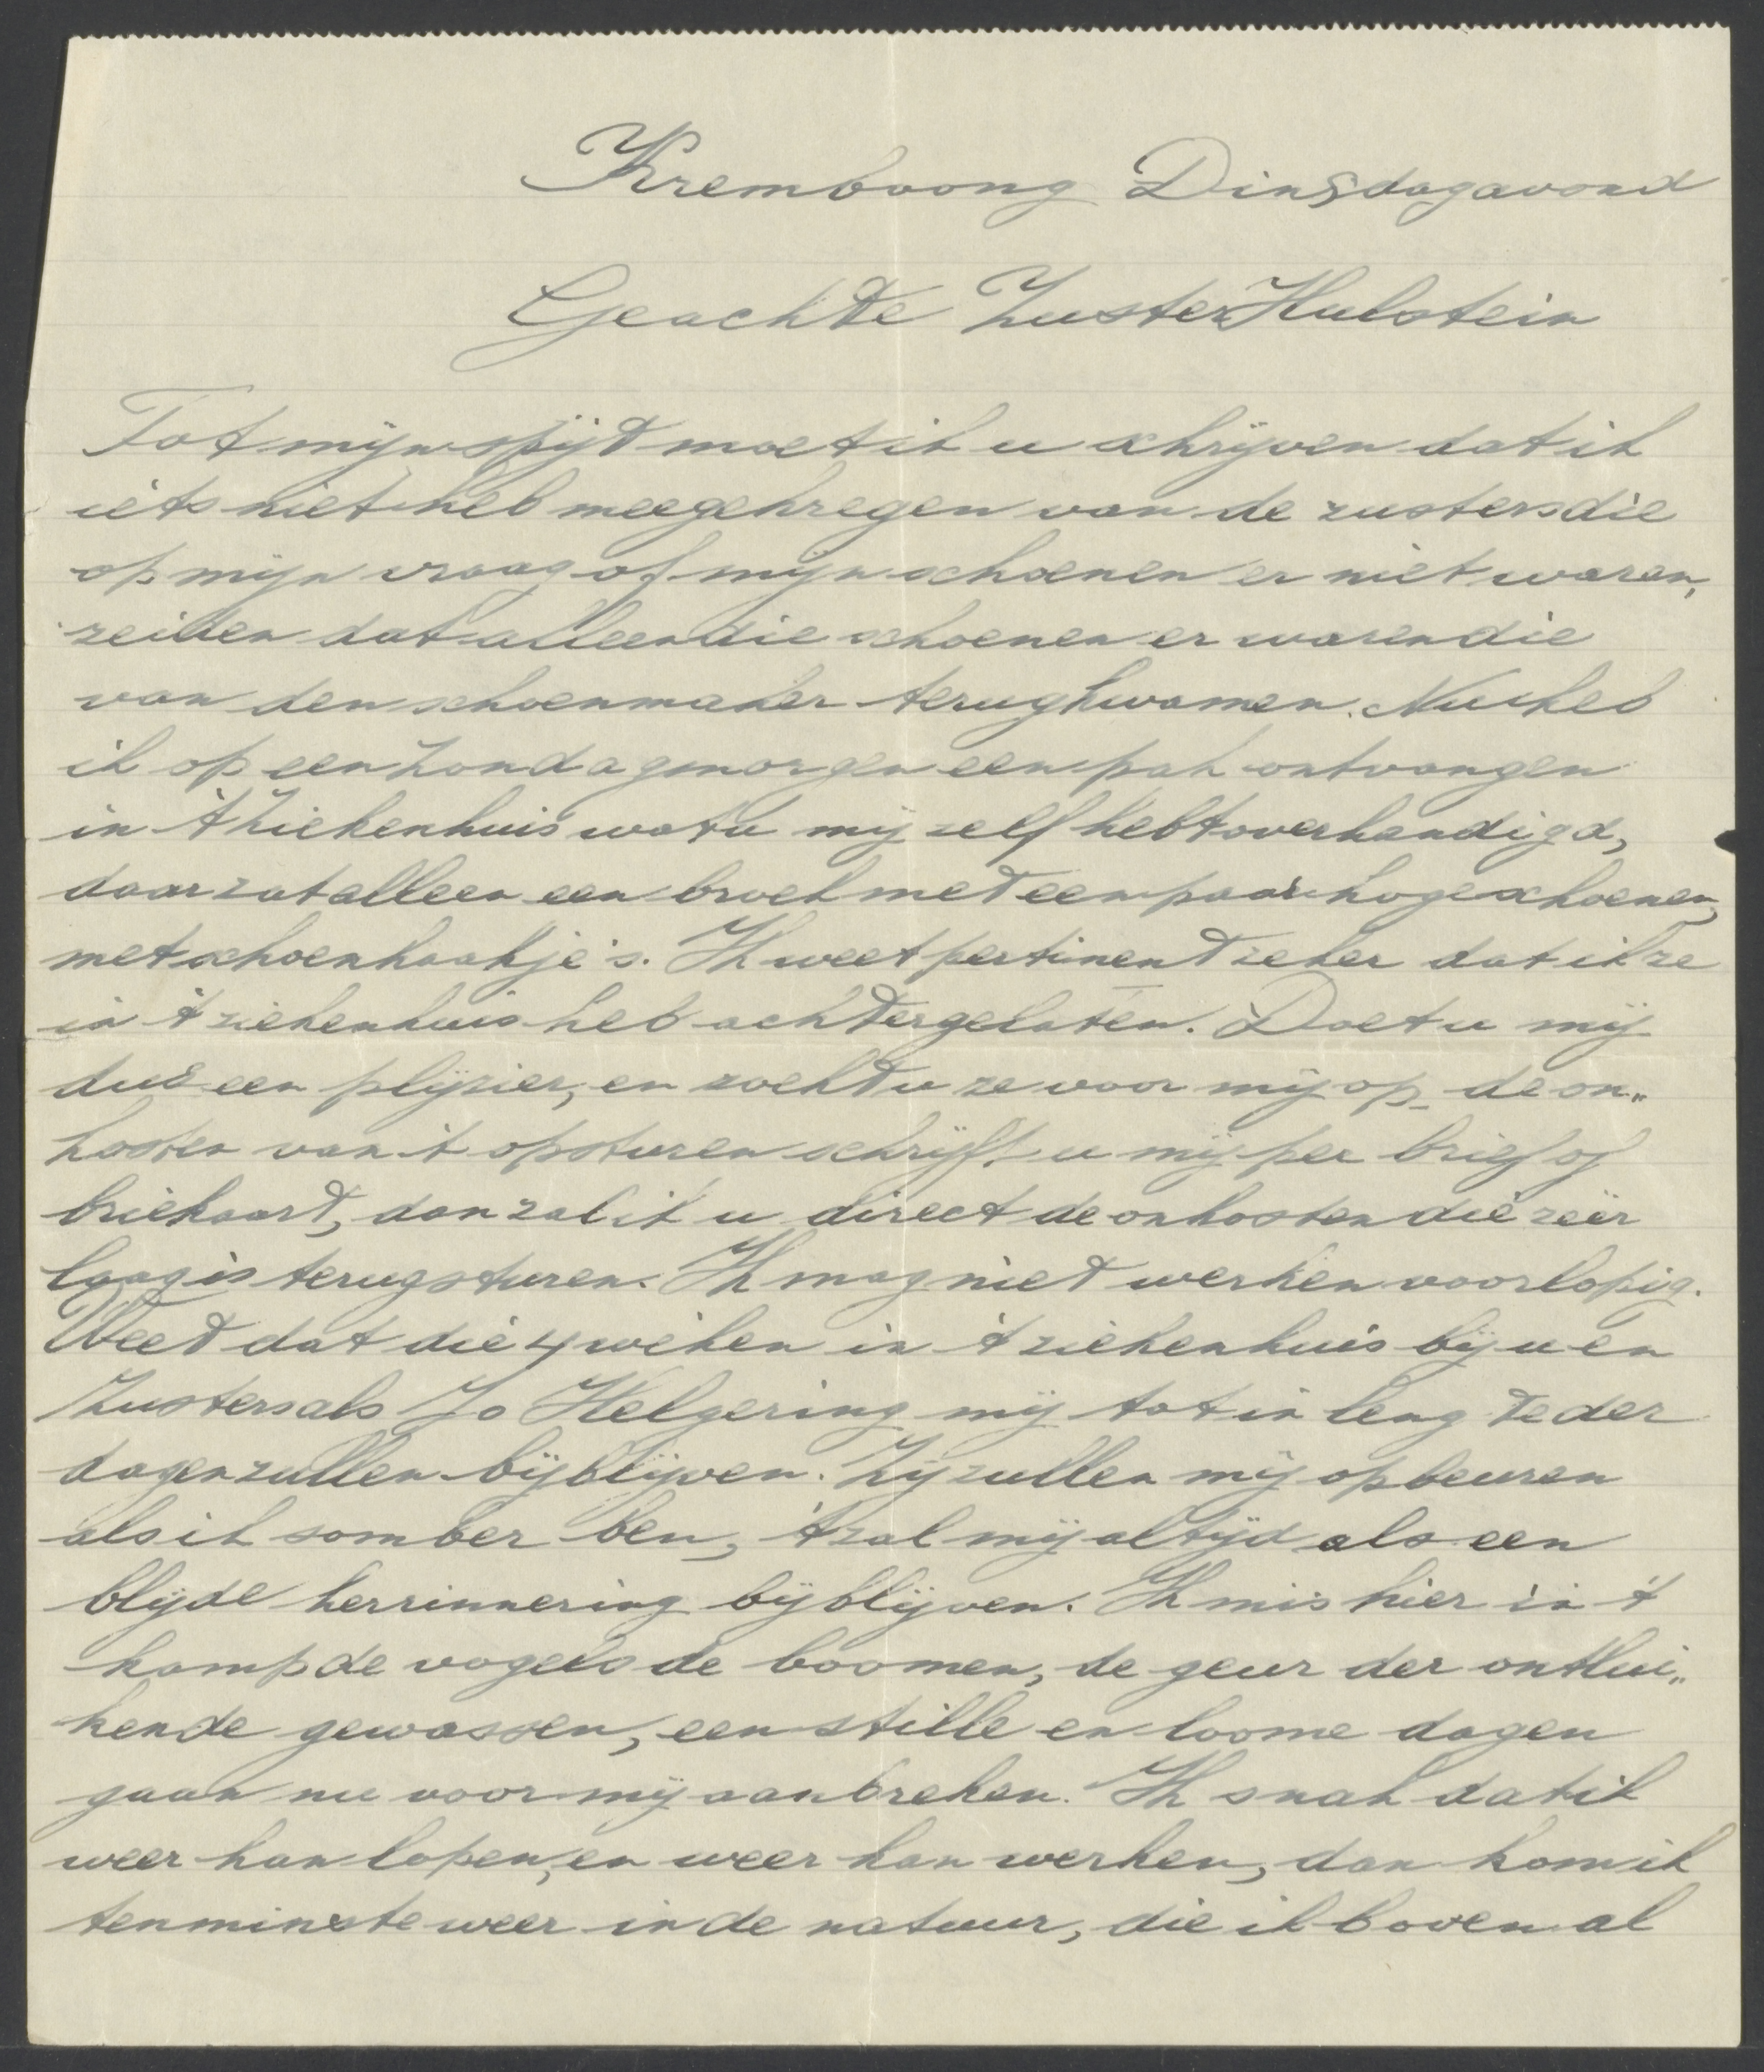 Kremboong Dinsdagavond
Geachte Zuster Hulstein
Tot mijn spijt moet ik u schrijven dat ik
iets niet heb meegekregen van de zusters die
op mijn vraag of mijn schoenen er niet waren,
zeiden dat alleen die schoenen er waren die
van den schoenmaker terugkwamen. Nu heb
ik op een Zondagmorgen een pak ontvangen
in 't Ziekenhuis wat u mij zelf hebt overhandigd,
daar zat alleen een broek met een paar hoge schoenen,
met schoenhaakje's. Ik weet pertinent zeker dat ik ze
in 't ziekenhuis heb achtergelaten. Doet u mij
dus een plijzier, en zoekt u ze voor mij op de on„
kosten van 't opsturen schrijft u mij per brief of
briekaart, dan zal ik u direct de onkosten die zeer
laag is terugsturen. Ik mag niet werken voorlopig.
Weet dat die 4 weken in 't ziekenhuis bij u en
Zusters als Jo Helgering mij tot in lengte der
dagen zullen bijblijven. Zij zullen mij opbeuren
als ik somber ben, 't zal mij altijd als een
blijde herrinnering bijblijven. Ik mis hier in 't
kamp de vogels de boomen, de geur der ontlui„
kende gewassen, een stille en loome dagen
gaan nu voor mij aanbreken. Ik snak dat ik
weer kan lopen, en weer kan werken, dan kom ik
tenminste weer in de natuur, die ik boven al